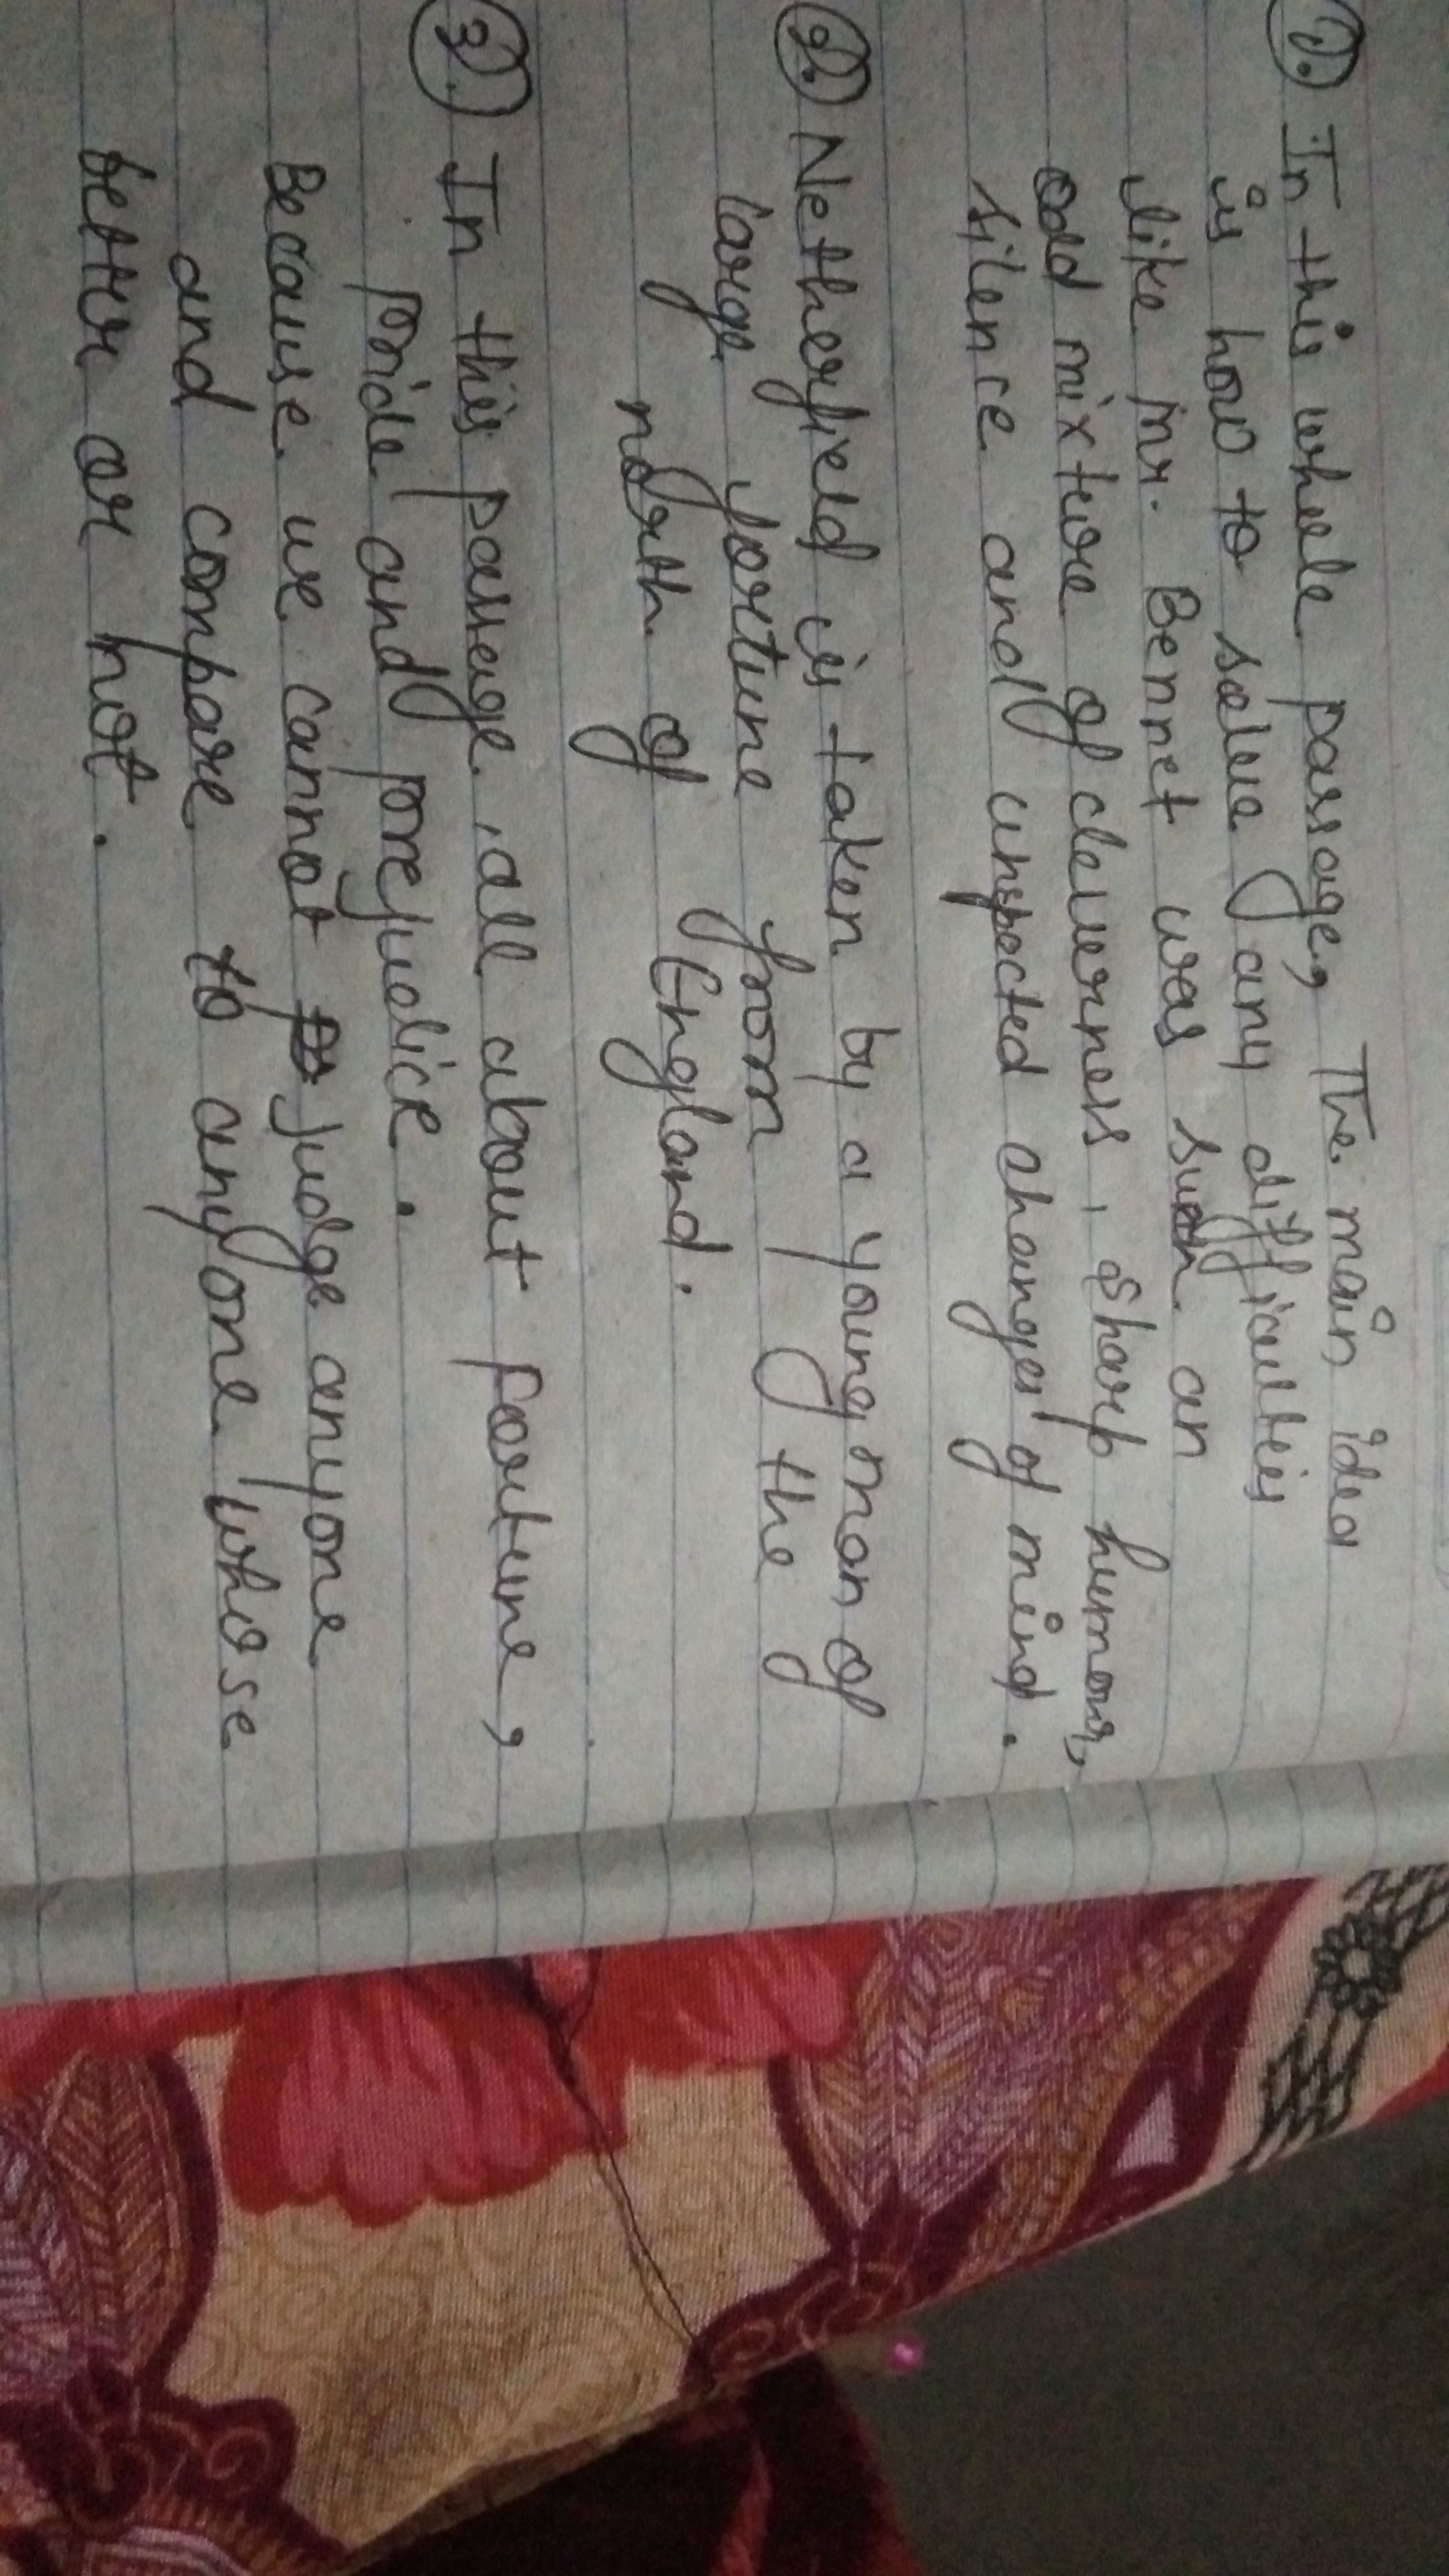 1. In this whole passage, The main idea
is how to solve any difficulties
like Mr. Bennet was such an
odd mixture of cleverness, sharp humour,
silence and unspected changes of mind.
2. Netherfield is taken by a young man of
large fortune from the
north of England.
3. In this passege, all about fortune,
pride and prejudice.
Because we cannot judge anyone
and compare to anyone whose
better or not.